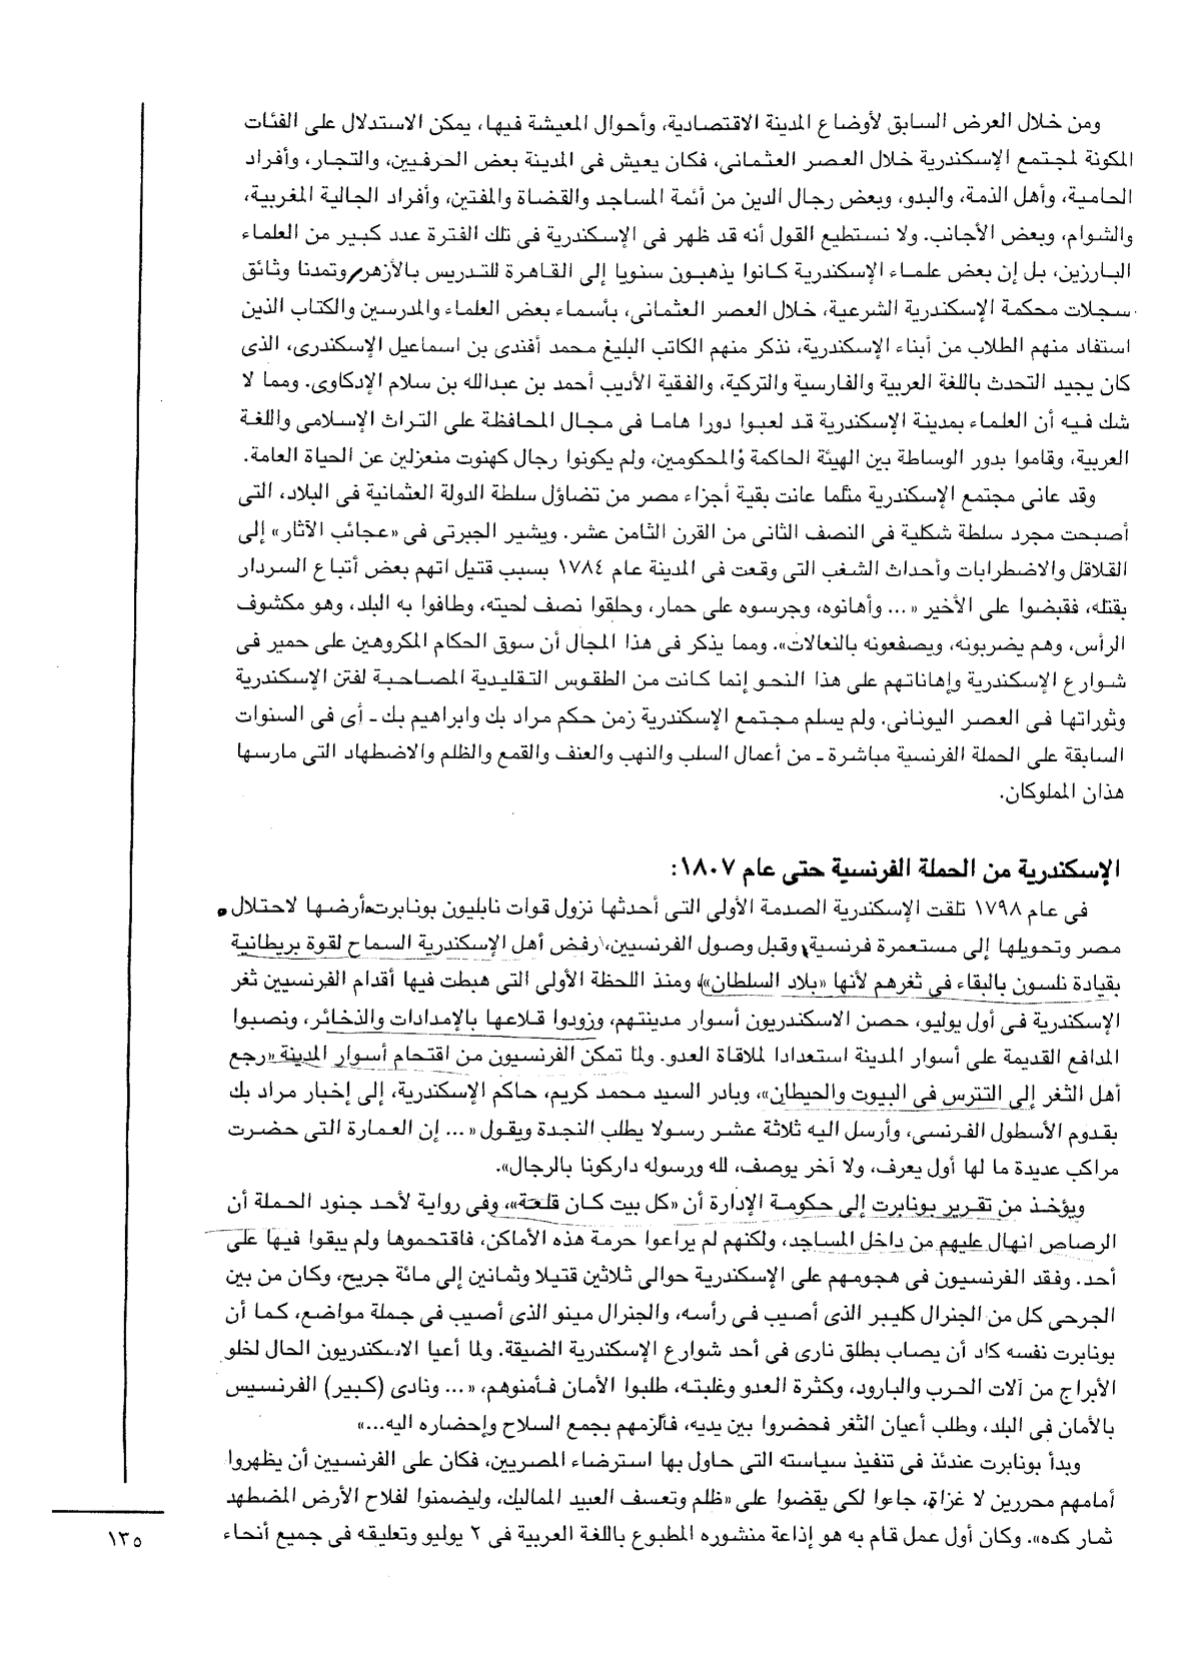 ومن خلال العرض السابق لأوضاع المدينة الاقتصادية، وأحوال المعيشة فيها، يمكن الاستدلال على الفئات
المكونة لمجتمع الإسكندرية خلال العصر العثمانى، فكان يعيش فى المدينة بعض الحرفيين، والتجار، وأفراد
الحامية، وأهل الذمة، والبدو، وبعض رجال الدين من أئمة المساجد والقضاة والمفتين، وأفراد الجالية المغربية،
والشوام، وبعض الأجانب. ولا نستطيع القول أنه قد ظهر فى الإسكندرية فى تلك الفترة عدد كبير من العلماء
البارزين، بل إن بعض علماء الإسكندرية كانوا يذهبون سنويا إلى القاهرة للتدريس بالأزهر، وتمدنا وثائق
سجلات محكمة الإسكندرية الشرعية، خلال العصر العثمانى، بأسماء بعض العلماء والمدرسين والكتاب الذين
استفاد منهم الطلاب من أبناء الإسكندرية، نذكر منهم الكاتب البليغ محمد أفندى بن اسماعيل الإسكندرى، الذى
كان يجيد التحدث باللغة العربية والفارسية والتركية، والفقية الأديب أحمد بن عبدالله بن سلام الإدكاوى. ومما لا
شك فيه أن العلماء بمدينة الإسكندرية قد لعبوا دورا هاما فى مجال المحافظة على التراث الإسلامى واللغة
العربية، وقاموا بدور الوساطة بين الهيئة الحاكمة والمحكومين، ولم يكونوا رجال كهنوت منعزلين عن الحياة العامة.
وقد عانى مجتمع الإسكندرية مثلما عانت بقية أجزاء مصر من تضاؤل سلطة الدولة العثمانية فى البلاد، التى
أصبحت مجرد سلطة شكلية فى النصف الثانى من القرن الثامن عشر. ويشير الجبرتى فى «عجائب الآثار» إلى
القلاقل والاضطرابات وأحداث الشغب التى وقعت فى المدينة عام ١٧٨٤ بسبب قتيل اتهم بعض أتباع السردار
بقتله، فقبضوا على الأخير «... وأهانوه، وجرسوه على حمار، وحلقوا نصف لحيته، وطافوا به البلد، وهو مكشوف
الرأس، وهم يضربونه، ويصفعونه بالنعالات». ومما يذكر فى هذا المجال أن سوق الحكام المكروهين على حمير فى
شوارع الإسكندرية وإهاناتهم على هذا النحو إنما كانت من الطقوس التقليدية المصاحبة لفتن الإسكندرية
وثوراتها فى العصر اليونانى. ولم يسلم مجتمع الإسكندرية زمن حكم مراد بك وابراهيم بك ـ أى فى السنوات
السابقة على الحملة الفرنسية مباشرة ـ من أعمال السلب والنهب والعنف والقمع والظلم والاضطهاد التى مارسها
هذان المملوكان.
الإسكندرية من الحملة الفرنسية حتى عام ١٨٠٧:
فى عام ١٧٩٨ تلقت الإسكندرية الصدمة الأولى التى أحدثها نزول قوات نابليون بونابرت أرضها لاحتلال
مصر وتحويلها إلى مستعمرة فرنسية، وقبل وصول الفرنسيين، رفض أهل الإسكندرية السماح لقوة بريطانية
بقيادة نلسون بالبقاء فى ثغرهم لأنها «بلاد السلطان»، ومنذ اللحظة الأولى التى هبطت فيها أقدام الفرنسيين ثغر
الإسكندرية فى أول يوليو، حصن الاسكندريون أسوار مدينتهم، وزودوا قلاعها بالإمدادات والذخائر، ونصبوا
المدافع القديمة على أسوار المدينة استعدادا لملاقاة العدو. ولما تمكن الفرنسيون من اقتحام أسوار المدينة «رجع
أهل الثغر إلى التترس فى البيوت والحيطان»، وبادر السيد محمد كريم، حاكم الإسكندرية، إلى إخبار مراد بك
بقدوم الأسطول الفرنسى، وأرسل اليه ثلاثة عشر رسولا يطلب النجدة ويقول «... إن العمارة التى حضرت
مراكب عديدة ما لها أول يعرف، ولا آخر يوصف، لله ورسوله داركونا بالرجال».
ويؤخذ من تقرير بونابرت إلى حكومة الإدارة أن «كل بيت كان قلعة»، وفى رواية لأحد جنود الحملة أن
الرصاص انهال عليهم من داخل المساجد، ولكنهم لم يراعوا حرمة هذه الأماكن، فاقتحموها ولم يبقوا فيها على
أحد. وفقد الفرنسيون فى هجومهم على الإسكندرية حوالى ثلاثين قتيلا وثمانين إلى مائة جريح، وكان من بين
الجرحى كل من الجنرال كليبر الذى أصيب فى رأسه، والجنرال مينو الذى أصيب فى جملة مواضع، كما أن
بونابرت نفسه كاد أن يصاب بطلق نارى فى أحد شوارع الإسكندرية الضيقة. ولما أعيا الاسكندريون الحال لخلو
الأبراج من آلات الحرب والبارود، وكثرة العدو وغلبته، طلبوا الأمان فأمنوهم، «... ونادى (كبير) الفرنسيس
بالأمان فى البلد، وطلب أعيان الثغر فحضروا بين يديه، فألزمهم بجمع السلاح وإحضاره اليه...»
وبدأ بونابرت عندئذ فى تنفيذ سياسته التى حاول بها استرضاء المصريين، فكان على الفرنسيين أن يظهروا
أمامهم محررين لا غزاة، جاءوا لكى يقضوا على «ظلم وتعسف العبيد المماليك، وليضمنوا لفلاح الأرض المضطهد
ثمار كده». وكان أول عمل قام به هو إذاعة منشوره المطبوع باللغة العربية فى ٢ يوليو وتعليقه فى جميع أنحاء
١٣٥